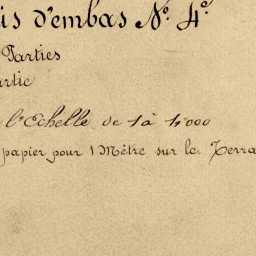 is d'embas Nº. 4º
Parties
artie
l'Echelle de 1 à 1'000
papier pour 1 Mètre sur le Terra